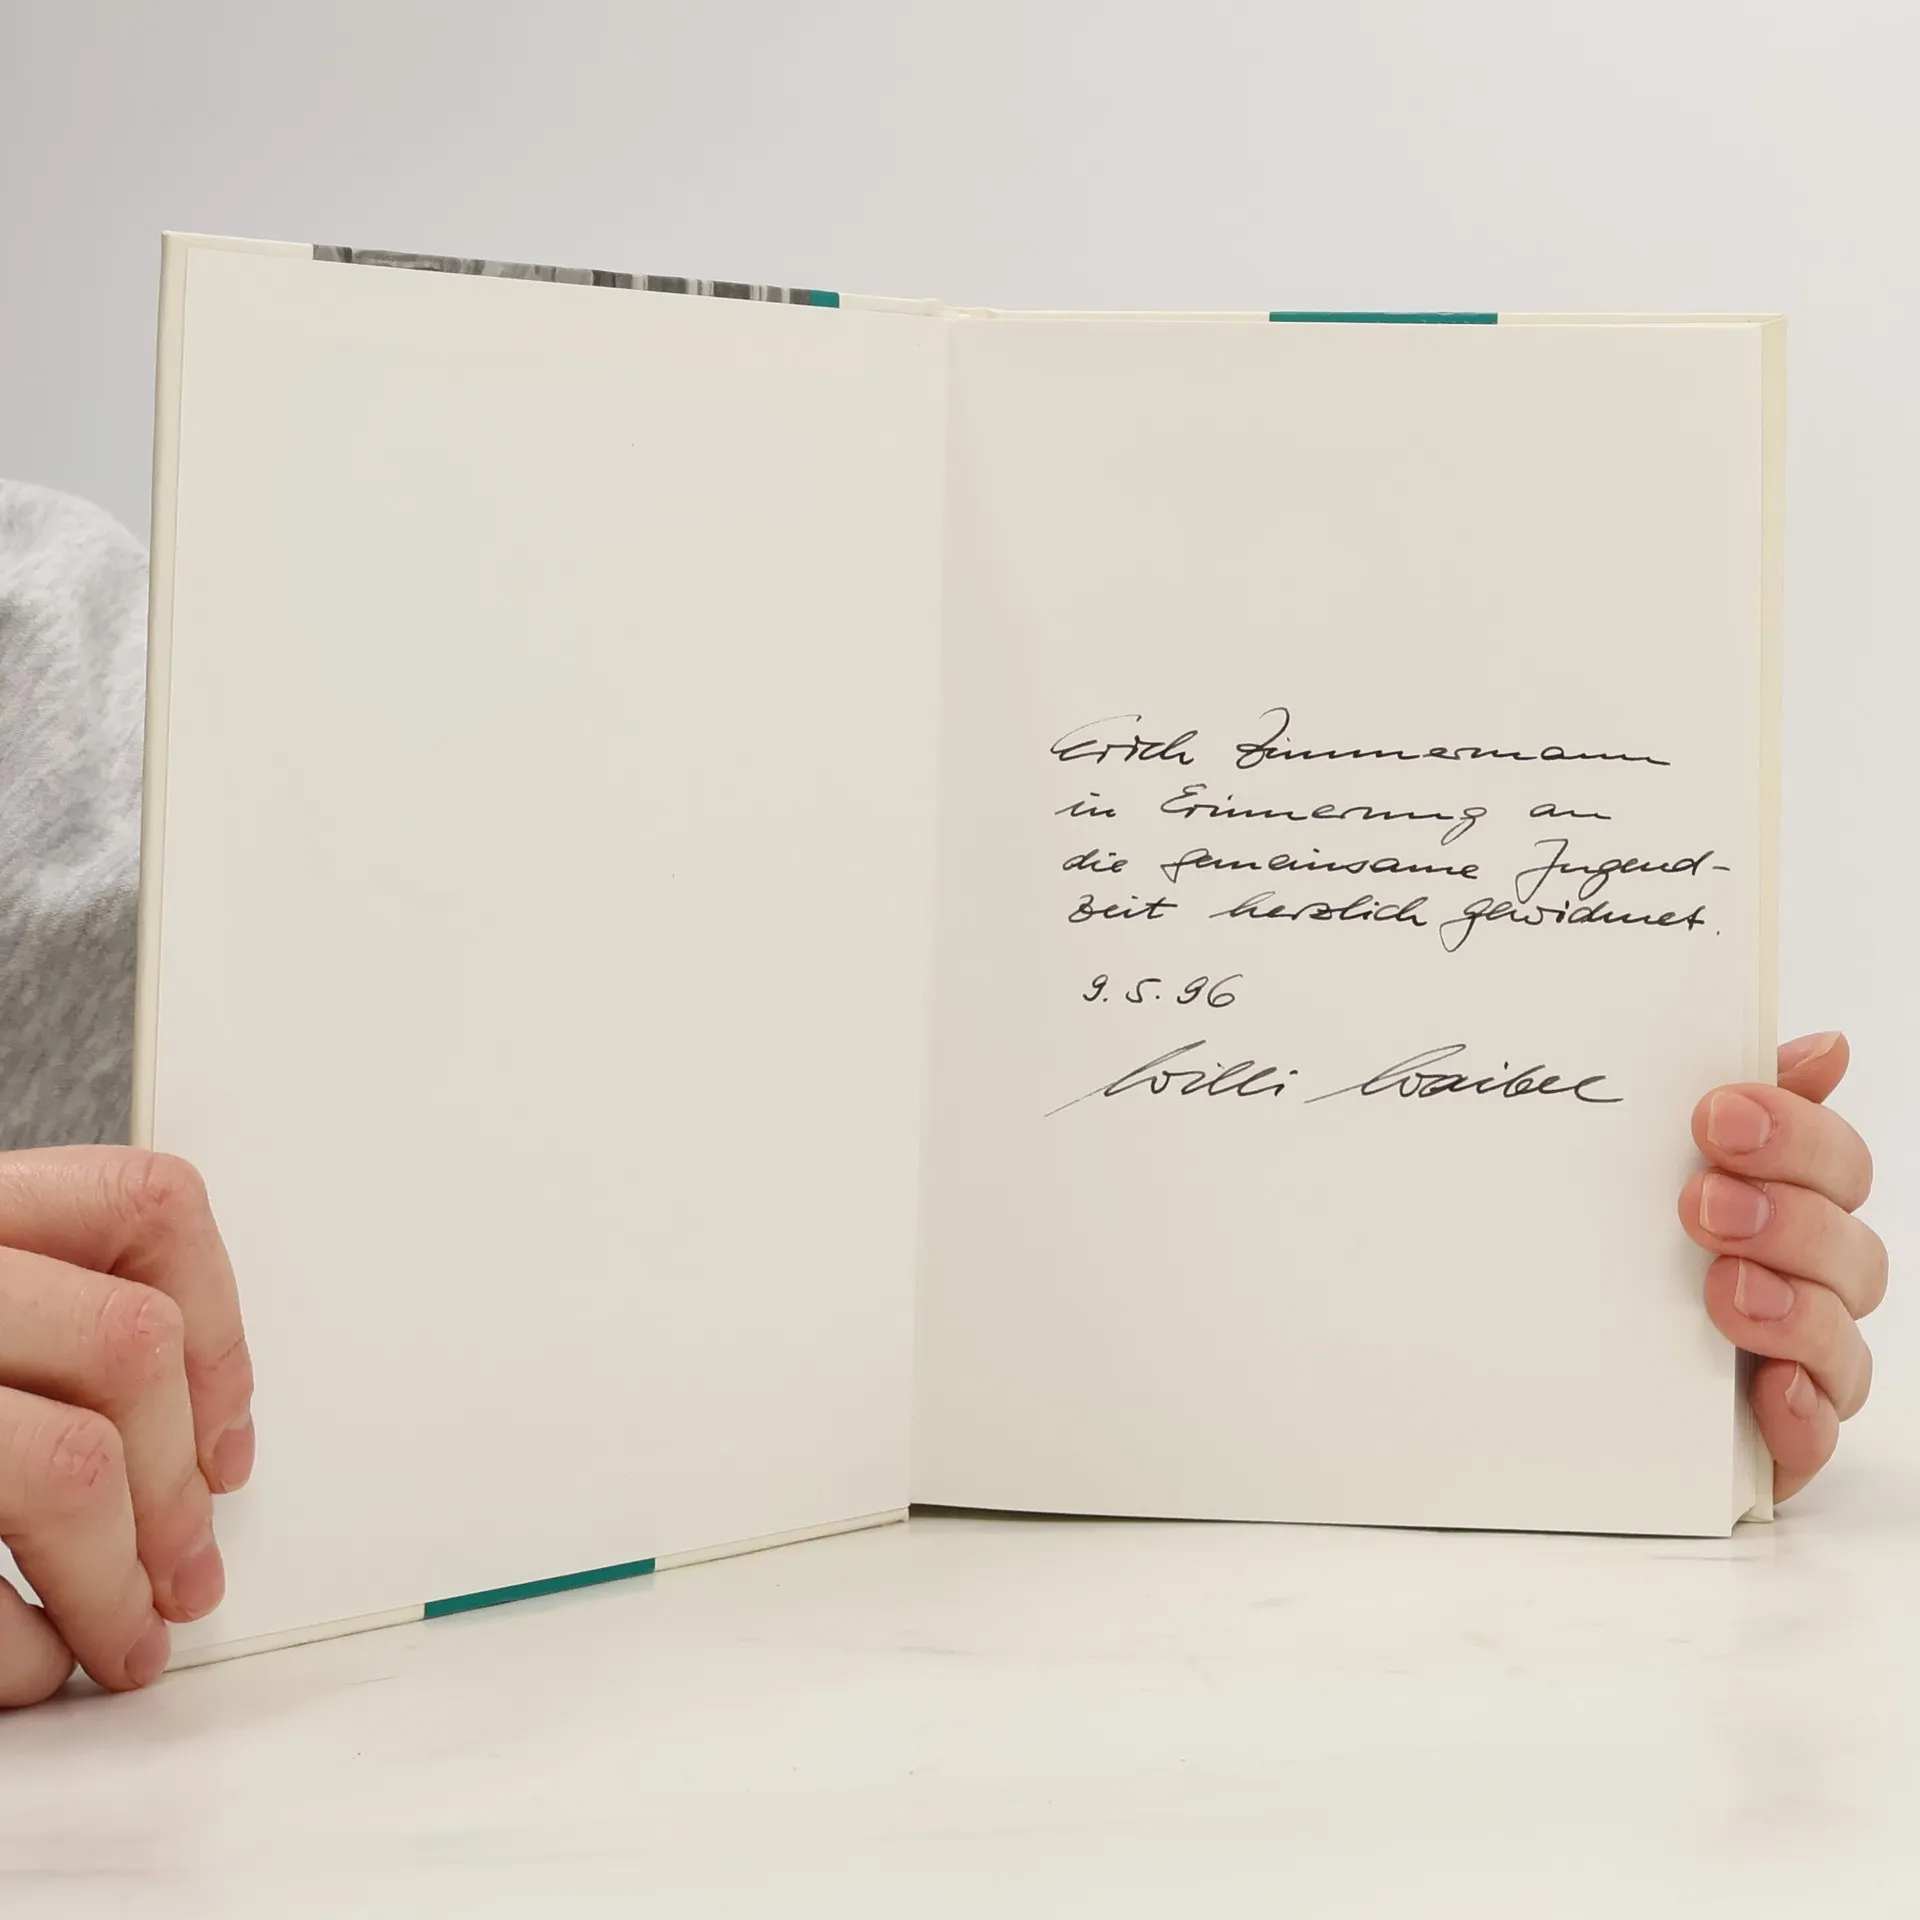 Erich Zimmermann
in Erinnerung an
die gemeinsame Jugend-
zeit herzlich gewidmet.
9.5.96
Willi Waibel